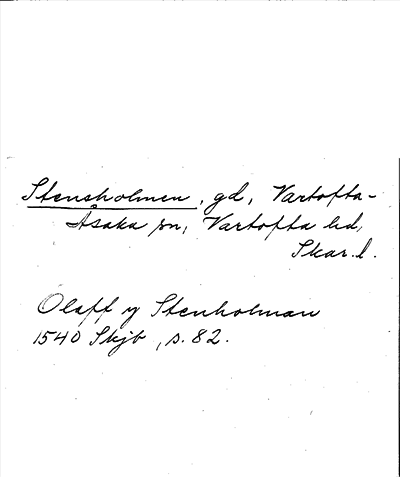 Stensholmen, gd, Vartofta-
Åsaka sn, Vartofta hd,
Skar. l.
Olaff y Stenholman
1540 Skjb, s. 82.